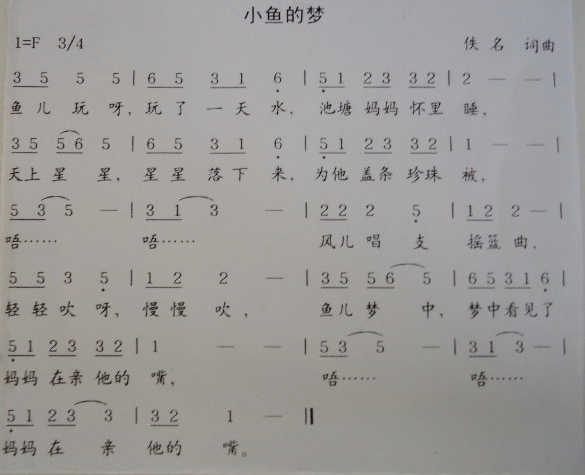 小鱼的梦
1=F 3/4 佚名 词曲
3 5 5 5 | 6 5 3 1 6 | 5 1 2 3 3 2 | 2 — — |
鱼儿玩呀，玩了一天水，池塘妈妈怀里睡，
3 5 5 6 5 | 6 5 3 1 6 | 5 1 2 3 3 2 | 1 — — |
天上星星，星星落下来，为他盖条珍珠被，
5 3 5 — | 3 1 3 — | 2 2 2 5 | 1 2 2 — |
唔…… 唔…… 风儿唱支摇篮曲，
5 5 3 5 | 1 2 2 — | 3 5 5 6 5 | 6 5 3 1 6 |
轻轻吹呀，慢慢吹，鱼儿梦中，梦中看见了
5 1 2 3 3 2 | 1 — — | 5 3 5 — | 3 1 3 — |
妈妈在亲他的嘴， 唔…… 唔……
5 1 2 3 3 | 3 2 1 — ‖
妈妈在亲他的嘴。